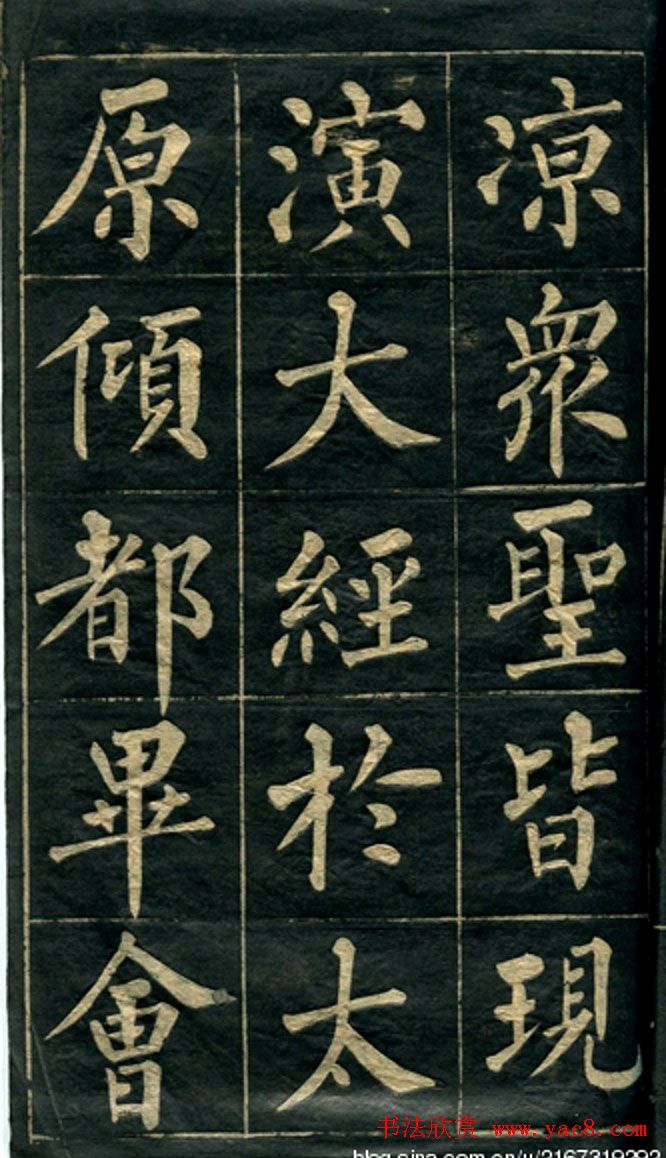 凉眾聖皆現
演大經於太
原傾都畢會
书法欣赏 www.yac8.com
blog.sina.com.cn/u/2167319292